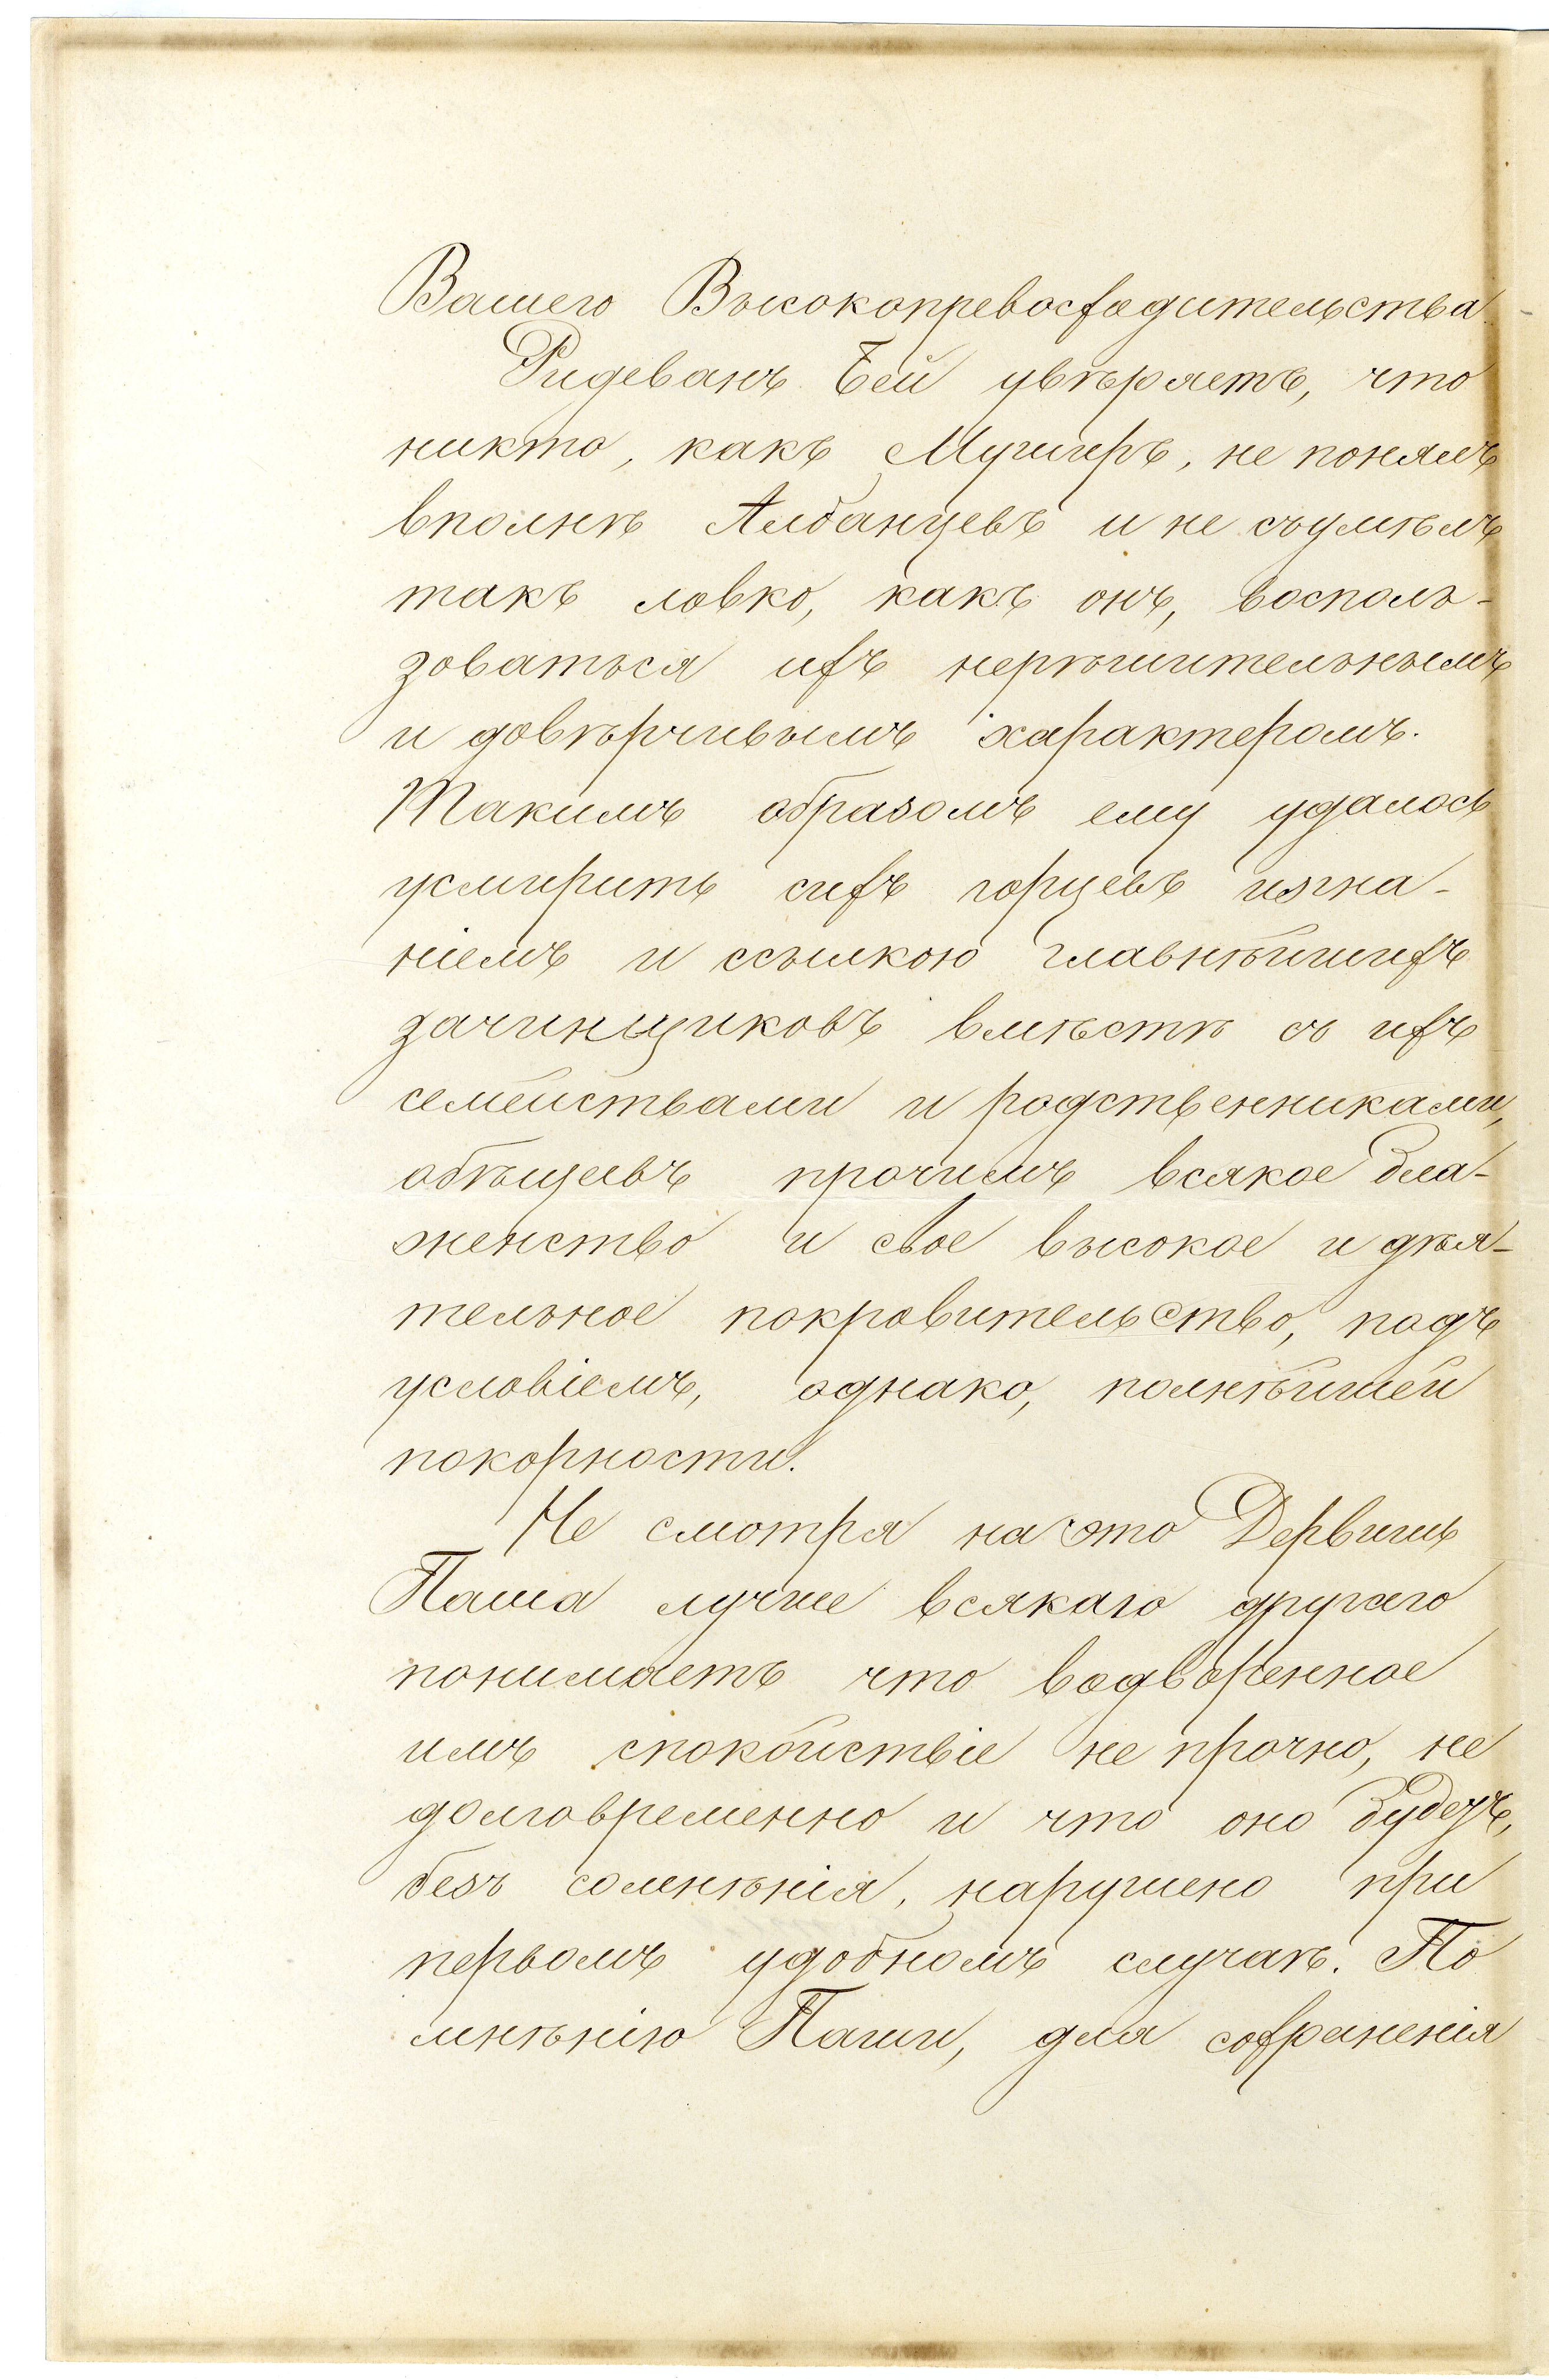 Вашего Высокопревосходительства.
Ридеванъ Бей увѣряетъ, что
никто, какъ Муширъ, не понялъ
вполнѣ Албанцевъ и не съумѣлъ
такъ ловко, какъ онъ, восполь-
зоваться ихъ нерѣшительнымъ
и довѣрчивымъ характеромъ.
Такимъ образомъ ему удалось
усмирить сихъ горцевъ изгна-
ніемъ и ссылкою главнѣйшихъ
зачинщиковъ вмѣстѣ съ ихъ
семействами и родственниками,
обѣщевъ прочимъ всякое бла-
женство и свое высокое и дѣя-
тельное покровительство, подъ
условіемъ, однако, полнѣйшей
покорности.
Не смотря на это Дервишъ
Паша лучше всякаго другаго
понимаетъ что водворенное
имъ спокойствіе не прочно, не
долговременно и что оно будетъ,
безъ сомнѣнія, нарушено при
первомъ удобномъ случаѣ. По
мнѣнію Паши, для сохраненія